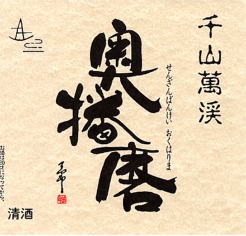 千山萬渓
せんざんばんけい おくはりま
奥播磨
清酒
お酒は20歳になってから。